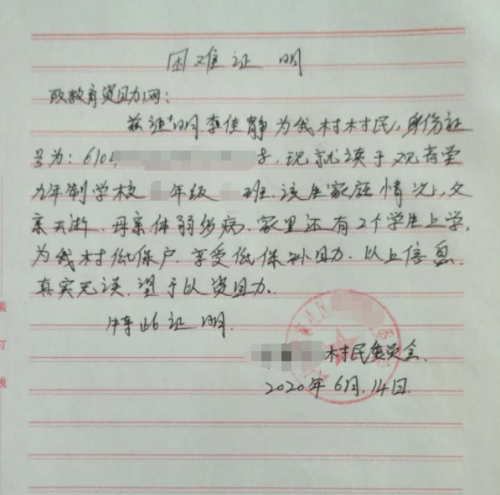 困难证明
致教育资助网:
兹证明李佳静为我村村民,身份证
号为:610,字,现就读于观音堂
九年制学校年级班.该生家庭情况,父
亲去逝.母亲体弱多病.家里还有2个学生上学.
为我村低保户.享受低保补助.以上信息.
真实无误.望予以资助.
特此证明.
村民委员会.
2020年6月.14日.